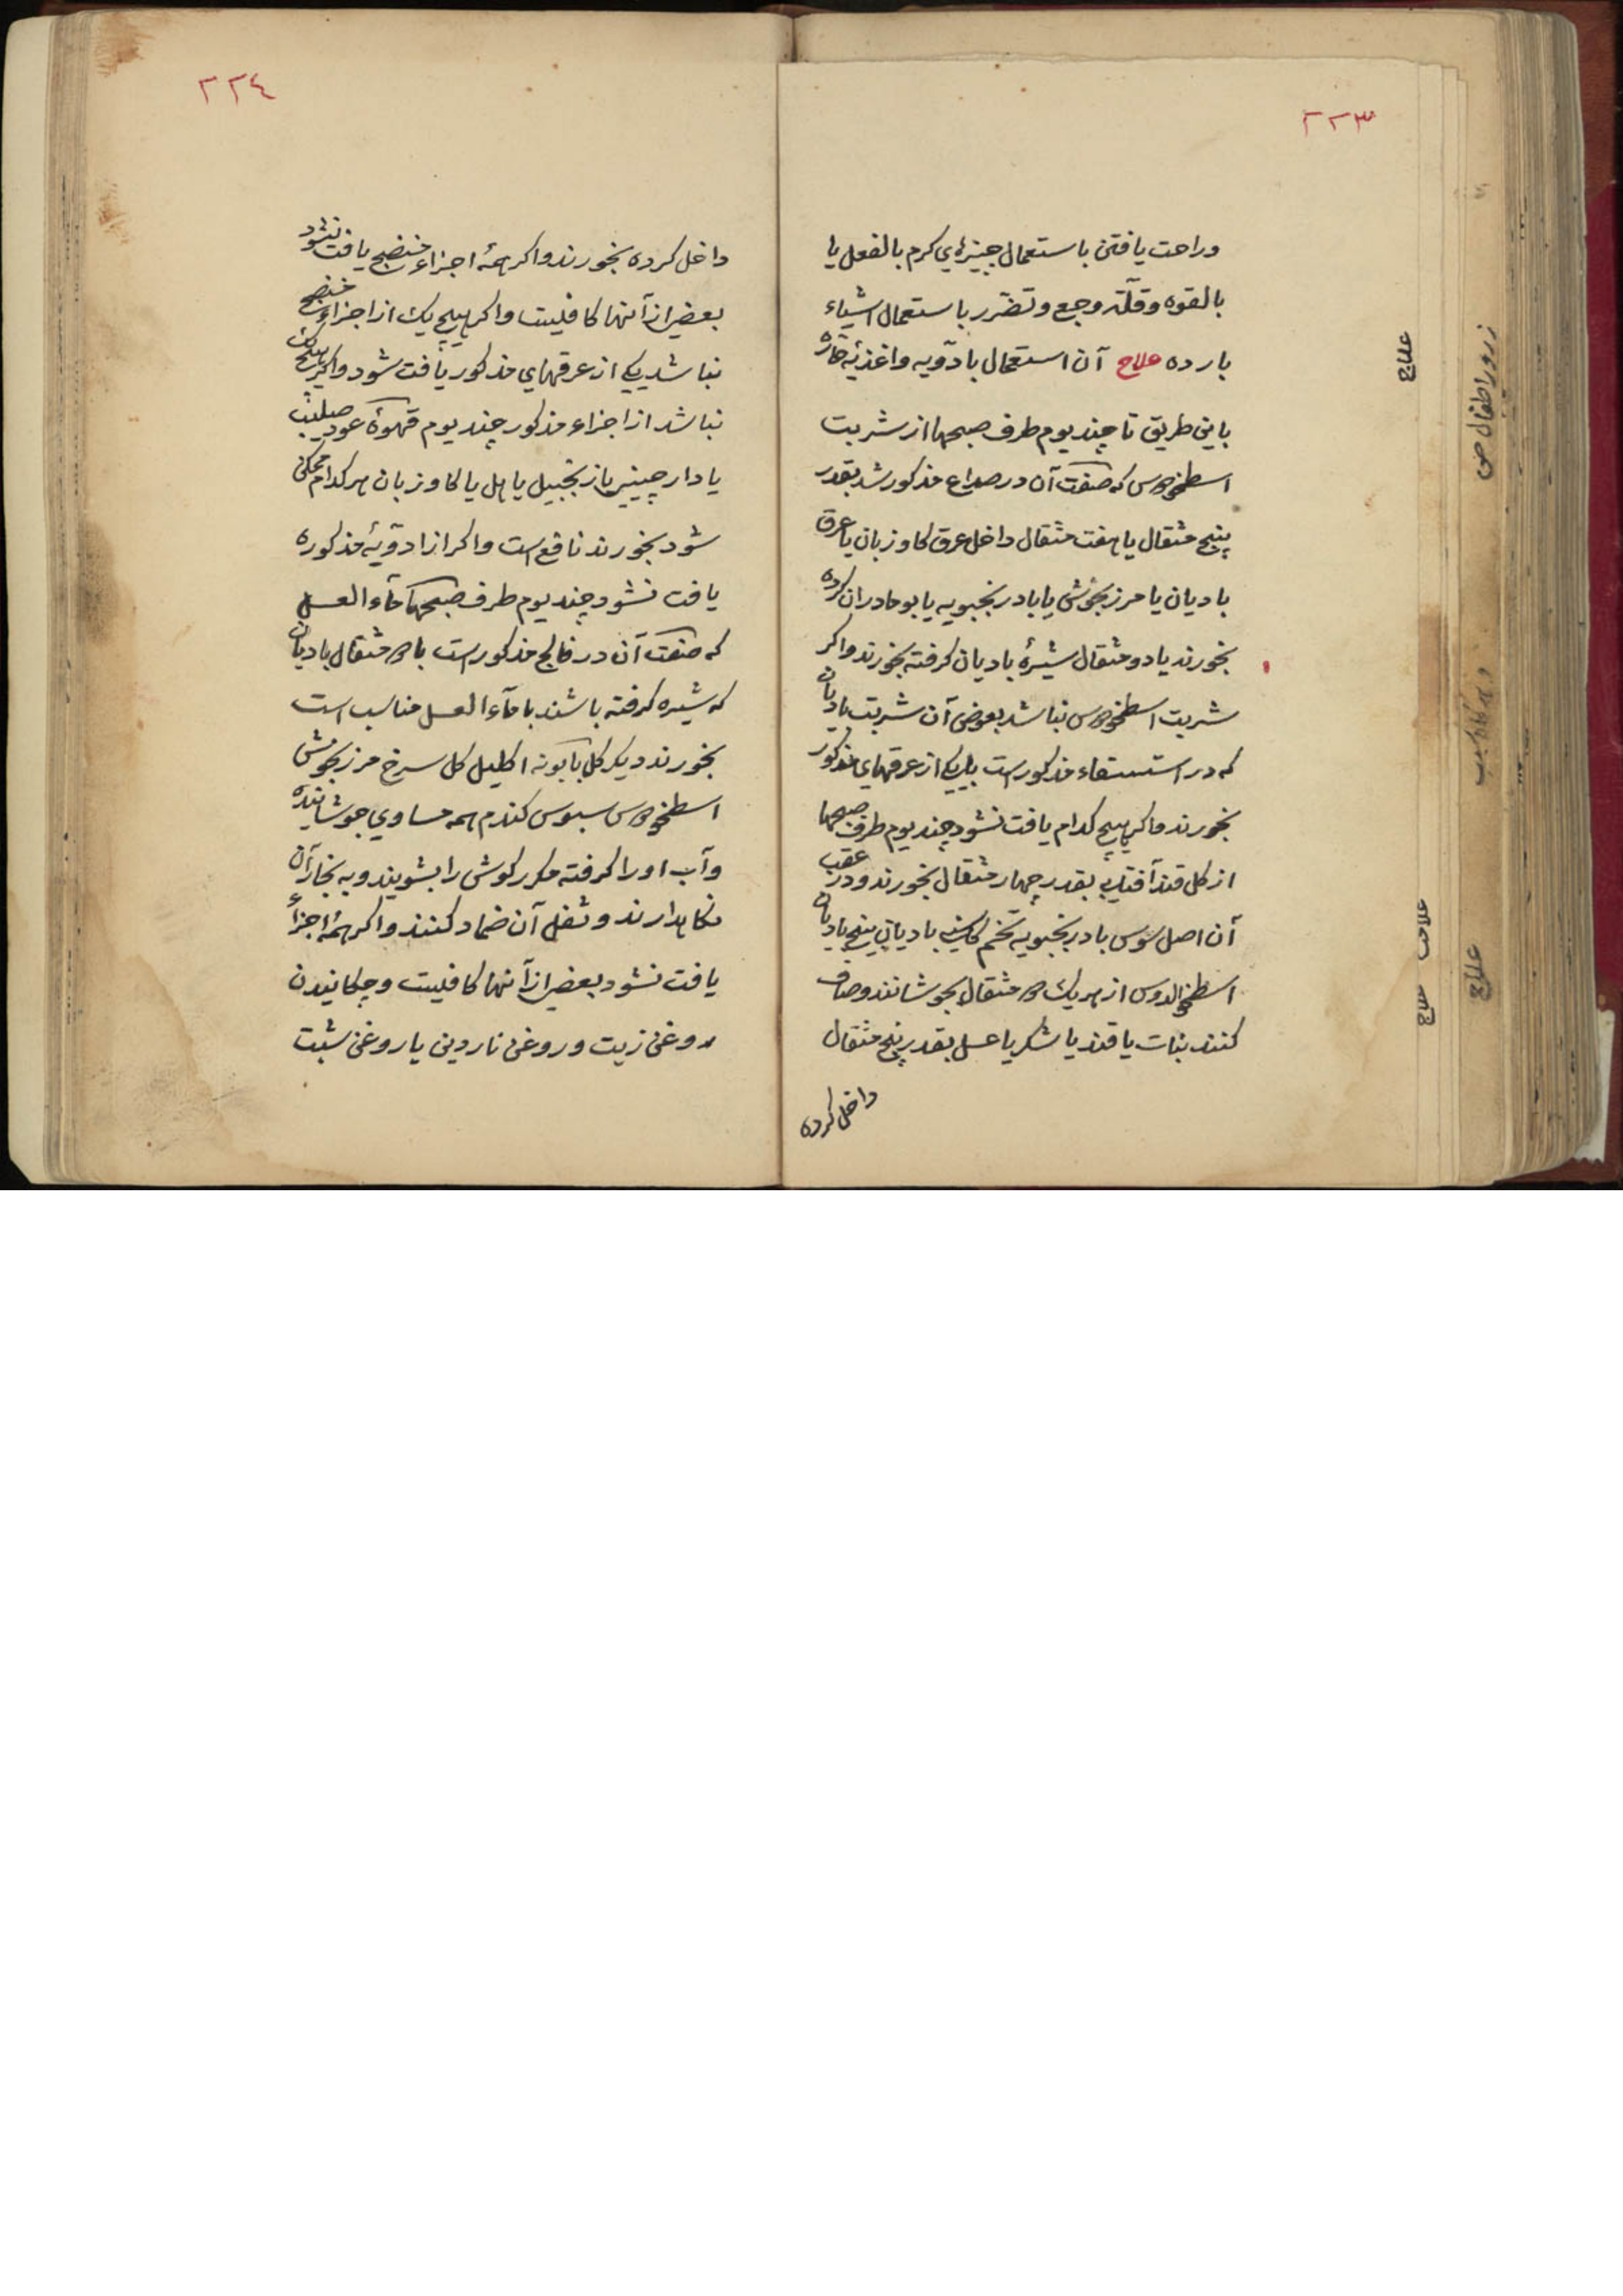 ٢٢٣
وراحت یافتن باستعمال چیزهای کرم بالفعل یا
بالقوه وقلّة وجع وتضرر باستعمال اشیاء
بارده علاج آن استعمال بادویه واغذیهٔ حارّه
باین طریق تا چند یوم طرف صبحها از شربت
اسطخودوس که صنعت آن در صداع مذکور شد بقدر
پنج مثقال یا هفت مثقال داخل عرق کاوزبان یا عرق
بادیان یا مرزنجوش یا بادرنجبویه یا بومادران کرده
بخورند یا دو مثقال شیرهٔ بادیان کرفته بخورند واکر
شربت اسطخودوس نباشد بعوض آن شربت بادیان
که در استسقاء مذکور است با یکی از عرقهای مذکور
بخورند واکر هیچ کدام یافت نشود چند یوم طرف صبحها
از کل قند آفتابی بقدر چهار مثقال بخورند ودر عقب
آن اصل سوس بادرنجبویه تخم کاسنی بادیان بیخ بادیان
اسطخودوس از هریک دو مثقال بجوشانند وصاف
کنند نبات یا قند یا شکر یا عسل بقدر پنج مثقال
داخل کرده
علاج
علامت
علاج
علاج
٢٢٤
داخل کرده بخورند واکر همهٔ اجزاء منضج یافت نشود
بعضی از آنها کافیست واکر هیچ یک از اجزاء منضج
نباشد یکی از عرقهای مذکور یافت شود واکر هیچ یک
نباشد از اجزاء مذکور چند یوم قهوهٔ عود صلیب
یا دارچینی یا زنجبیل یا هل یا کاوزبان هر کدام ممکن
شود بخورند نافع است واکر از ادویهٔ مذکوره
یافت نشود چند یوم طرف صبحها ماء العسل
که صنعت آن در فالج مذکور است با دو مثقال بادیان
که شیره کرفته باشند با ماء العسل مناسب است
بخورند دیکر کل بابونه اکلیل کل سرخ مرزنجوش
اسطخودوس سبوس کندم همه مساوی جوشانیده
وآب او را کرفته مکرر کوش را بشویند وبه بخار آن
نکاهدارند وثفل آن ضماد کنند واکر همهٔ اجزاء
یافت نشود بعضی از آنها کافیست وچکانیدن
روغن زیت وروغن ناردین یا روغن شبت